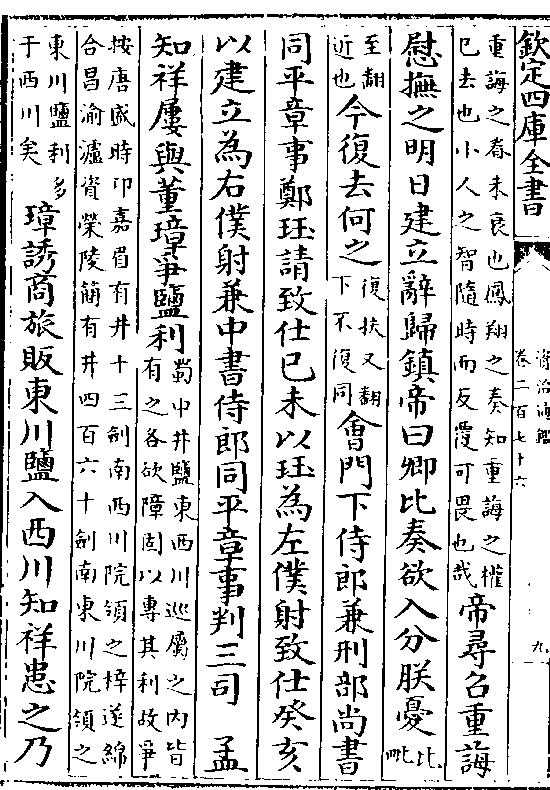 欽定四庫全書
資治通鑑
卷二百七十六
九
重誨之眷未衰也鳳翔之奏知重誨之權
已去也小人之智隨時而反覆可畏也哉
帝尋召重誨
慰撫之明日建立辭歸鎮帝曰卿比奏欲入分朕憂
比毗
至翻
近也
今復去何之
復扶又翻
下不復同
會門下侍郎兼刑部尚書
同平章事鄭珏請致仕已未以珏為左僕射致仕癸亥
以建立為右僕射兼中書侍郎同平章事判三司 孟
知祥屢與董璋爭鹽利
蜀中井鹽東西川巡屬之内皆
有之各欲障固以專其利故爭
按唐盛時卭嘉眉有井十三劍南西川院領之梓遂綿
合昌渝瀘資榮陵簡有井四百六十劍南東川院領之
東川鹽利多
于西川矣
璋誘商旅販東川鹽入西川知祥患之乃